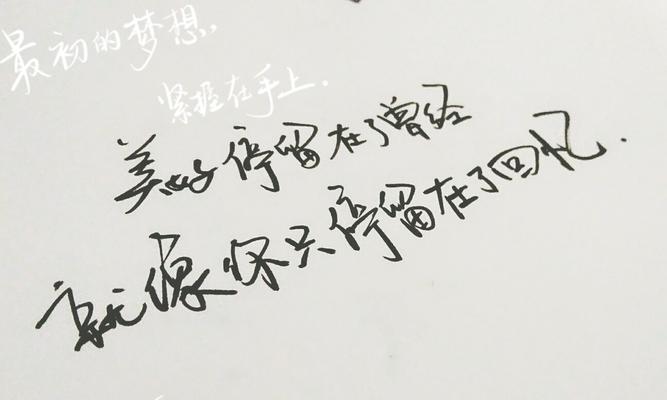 最初的梦想,
紧握在手上.
美好停留在了曾经
就像你只停留在了回忆.